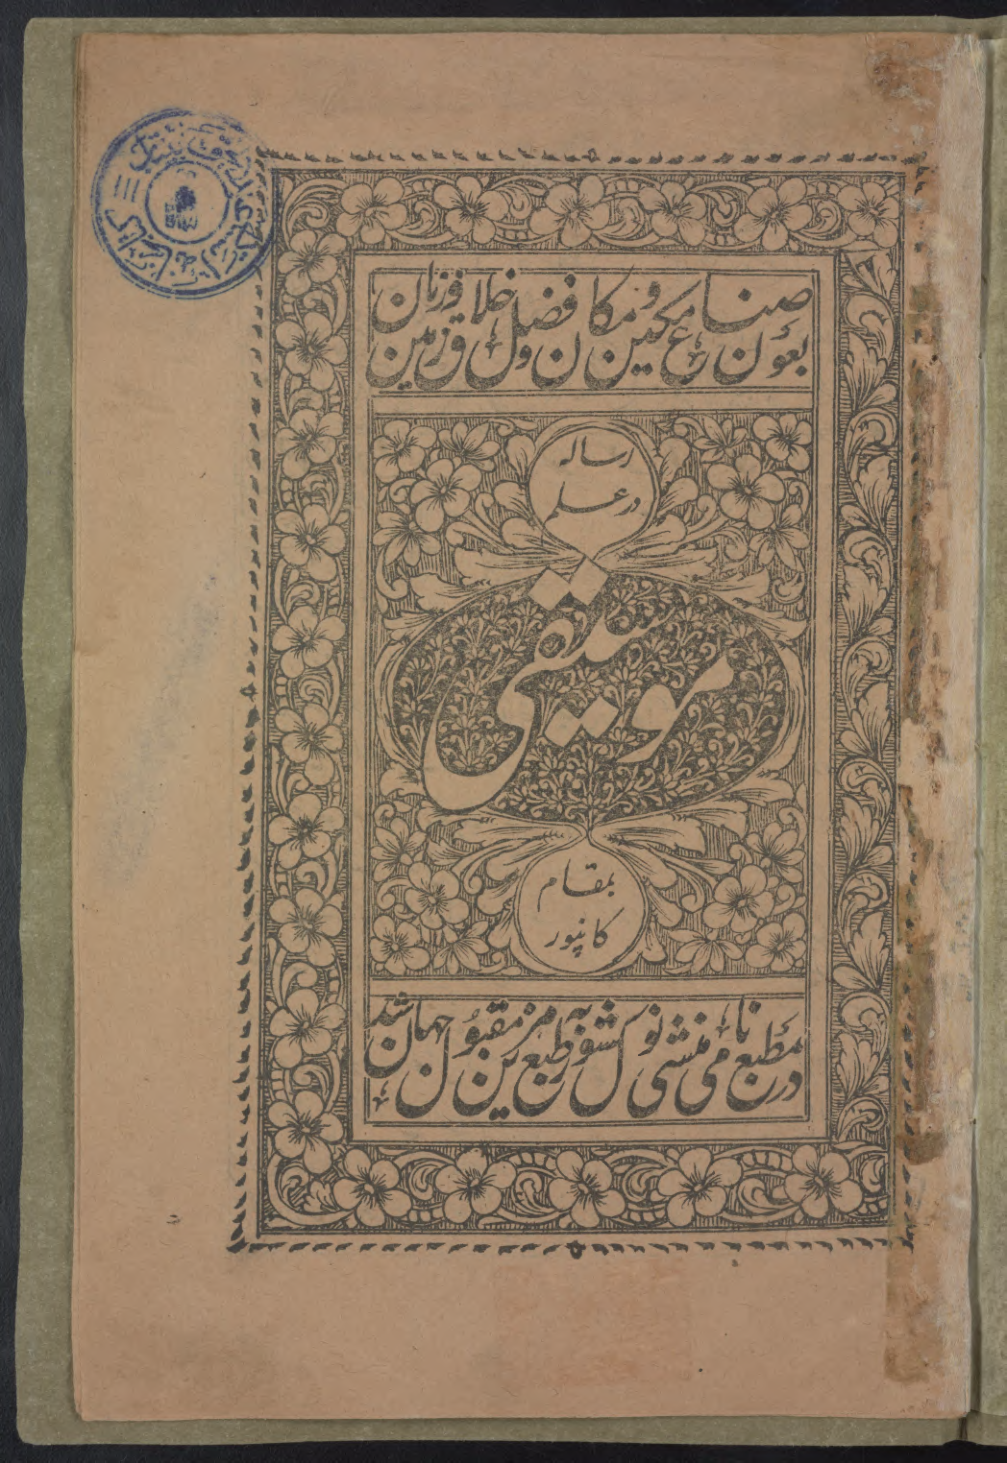 بعون صناع مکین و مکان و فضل خلاق زمین و زمان
رساله
در علم
موسیقی
بمقام
کانپور
در مطبع نامی منشی نولکشور به طبع مزین مقبول جهان شد